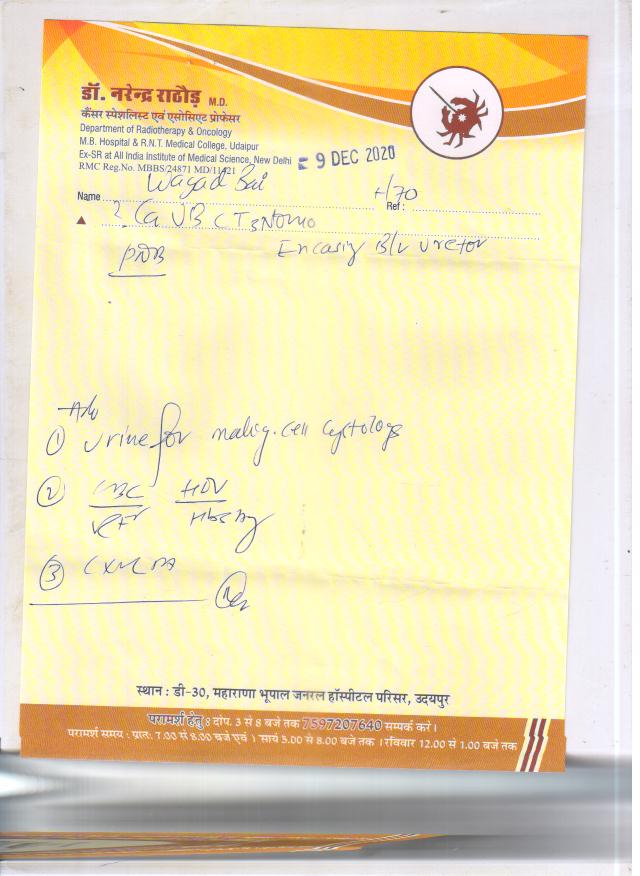 डॉ. नरेन्द्र राठौड़ M.D.
कैंसर स्पेशलिस्ट एवं एसोसिएट प्रोफेसर
Department of Radiotherapy & Oncology
M.B. Hospital & R.N.T. Medical College, Udaipur
Ex-SR at All India Institute of Medical Science, New Delhi
RMC Reg.No. MBBS/24871 MD/11421
9 DEC 2020
Name Wagad Bai Ref : F/70
? Ca UB C T3N0M0
Encasing B/L Ureter
Adv
① Urine for malig. cell cytology
② CBC HIV
RFT HbsAg
③ CXR PA
स्थान : डी-30, महाराणा भूपाल जनरल हॉस्पीटल परिसर, उदयपुर
परामर्श हेतु : दोप. 3 से 8 बजे तक 7597207640 सम्पर्क करे।
परामर्श समय : प्रातः 7.00 से 8.00 बजे एवं । सायं 5.00 से 8.00 बजे तक । रविवार 12.00 से 1.00 बजे तक